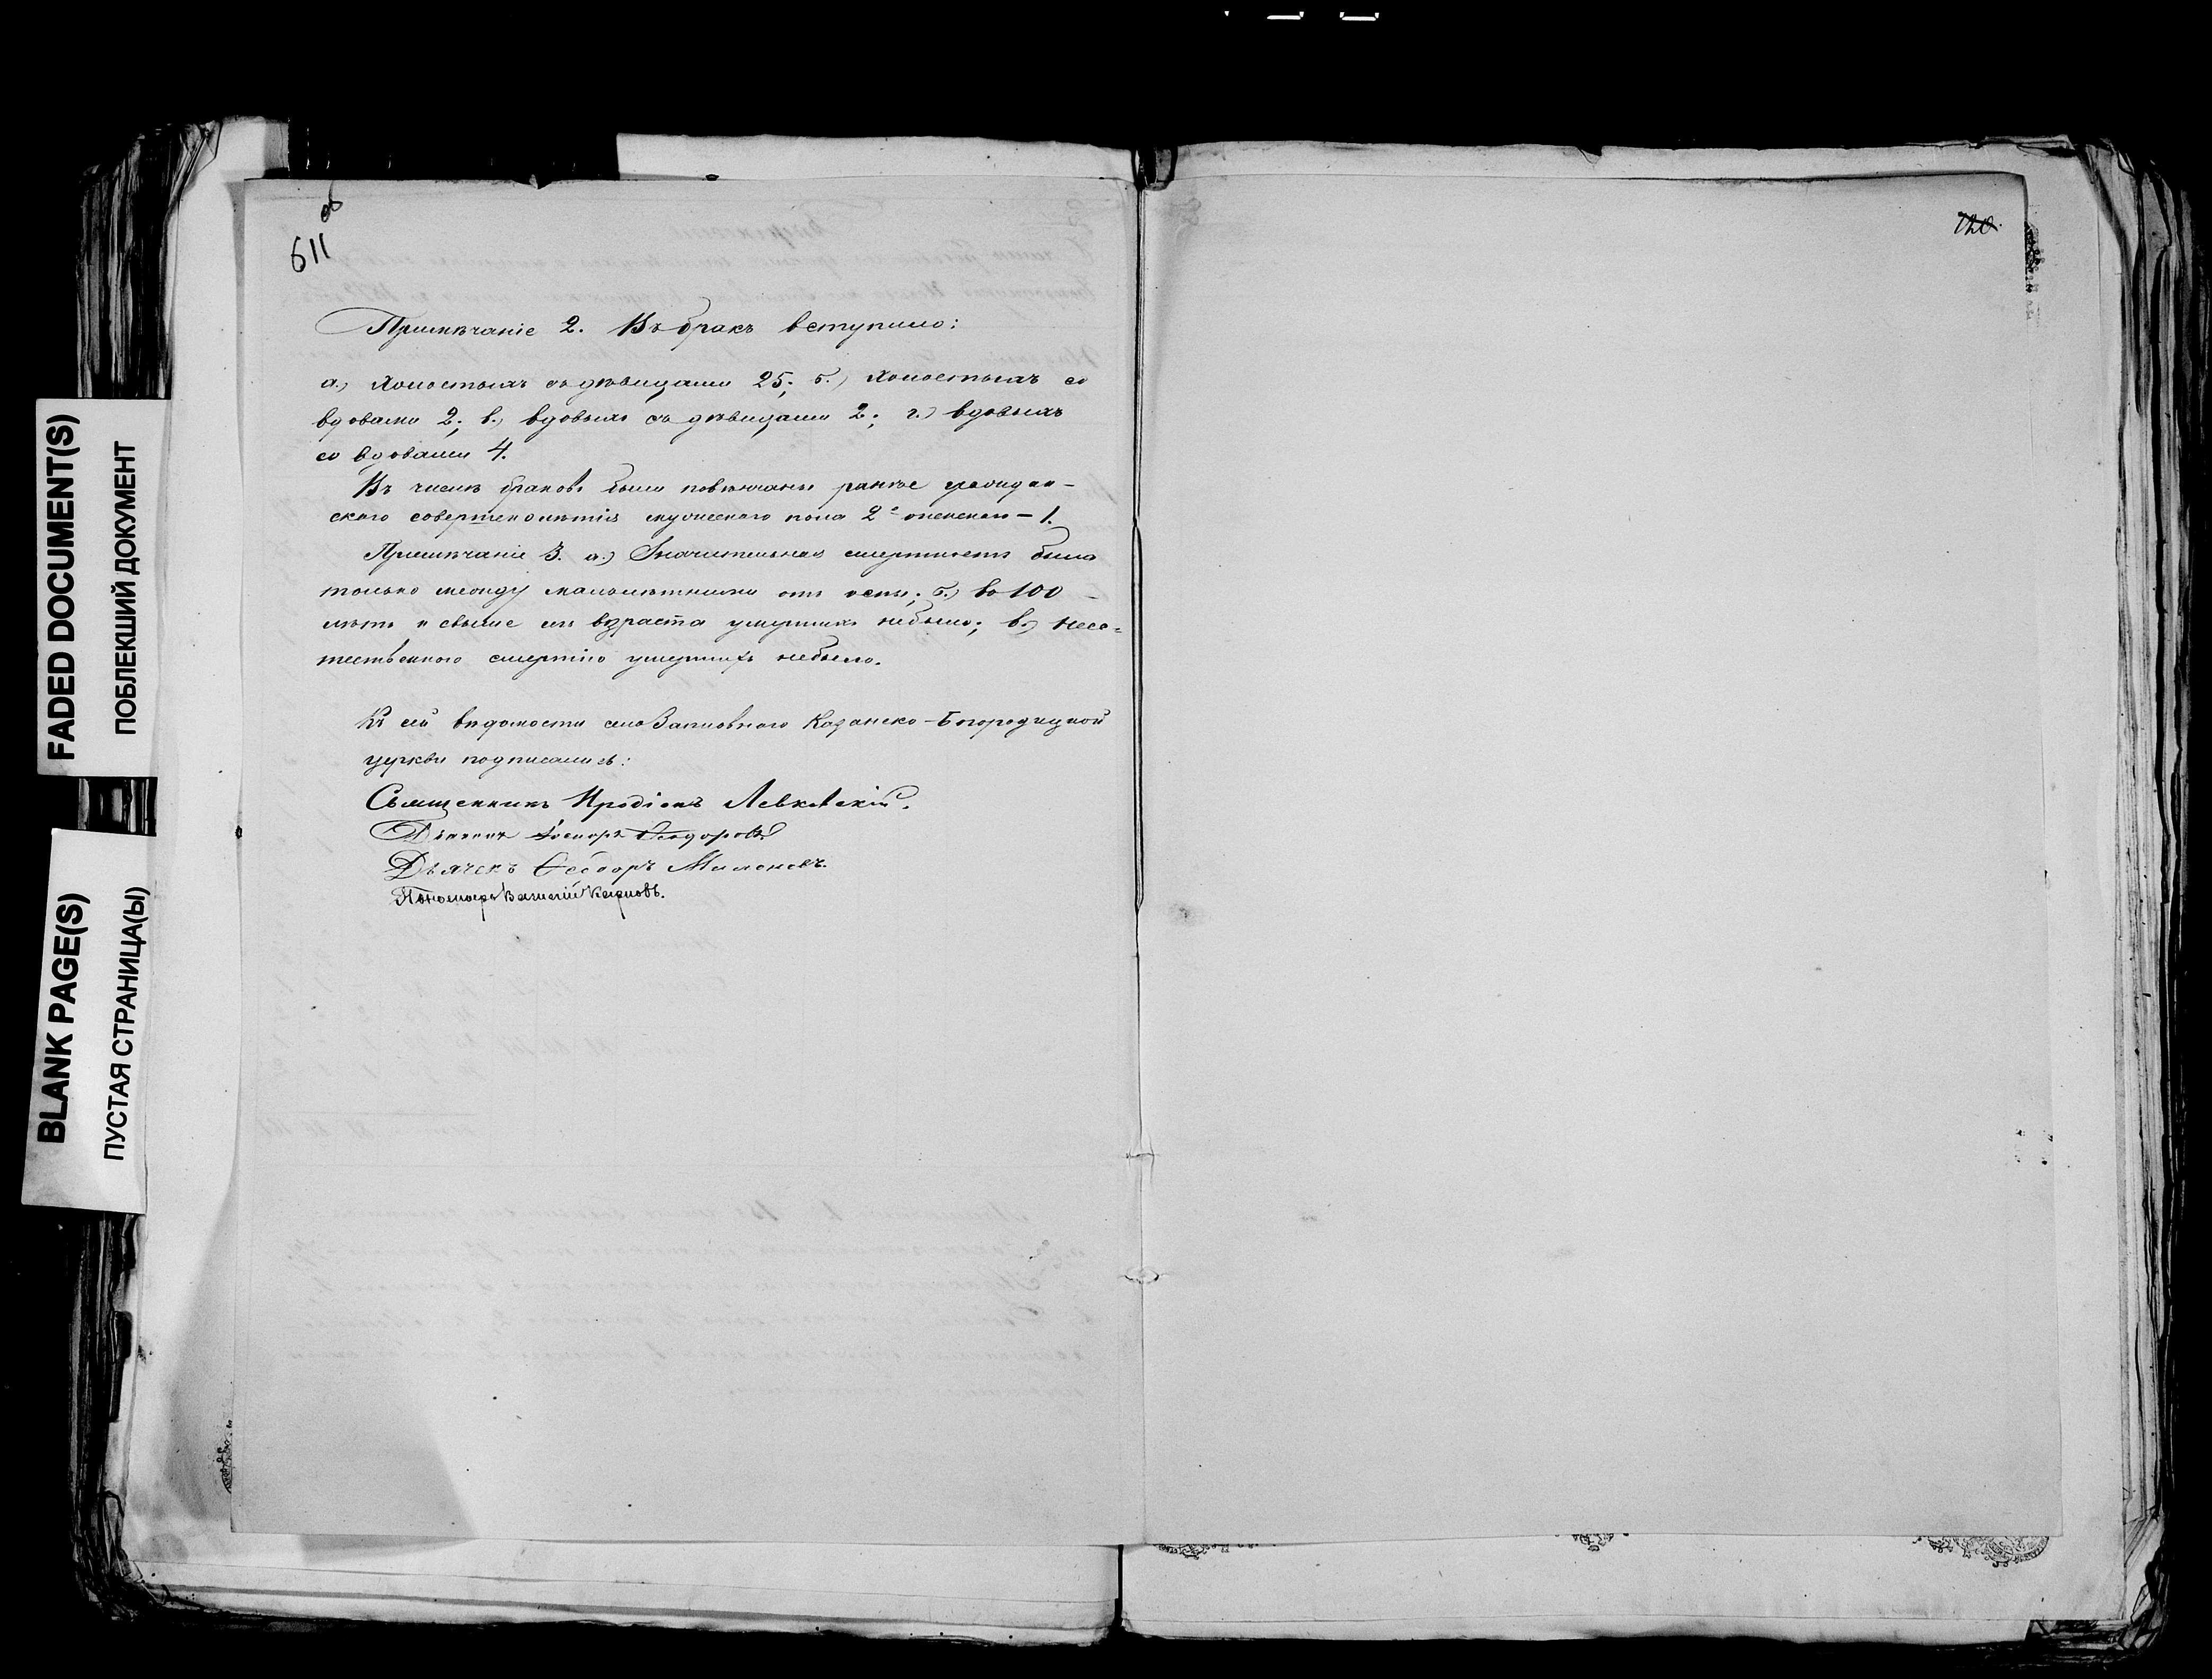 611 об
120.
Примѣчаніе 2. Въ бракъ вступило:
а.) Холостыхъ съ дѣвицами 25; б.) Холостыхъ со
вдовами 2; в.) вдовыхъ съ дѣвицами 2; г.) вдовыхъ
со вдовами 4.
Въ числѣ браковъ были повѣнчаны ранѣе граждан-
скаго совершенолѣтія мужескаго пола 2 женскаго – 1.
Примѣчаніе 3. а.) Значительная смертность была
только между малолѣтними отъ оспы; б.) во 100
лѣтъ и свыше возраста умершихъ небыло; в.) несе-
тественною смертію умершихъ небыло.
Къ сей вѣдомости села Казанско-Богородицкой
церкви подписались:
Священникъ Иродіонъ Левковскій.
Федоровъ
Дьячекъ Ѳеодоръ
Пономарь Василій Карповъ.
FADED DOCUMENT(S)
ПОБЛЕКШИЙ ДОКУМЕНТ
BLANK PAGE(S)
ПУСТАЯ СТРАНИЦА(Ы)